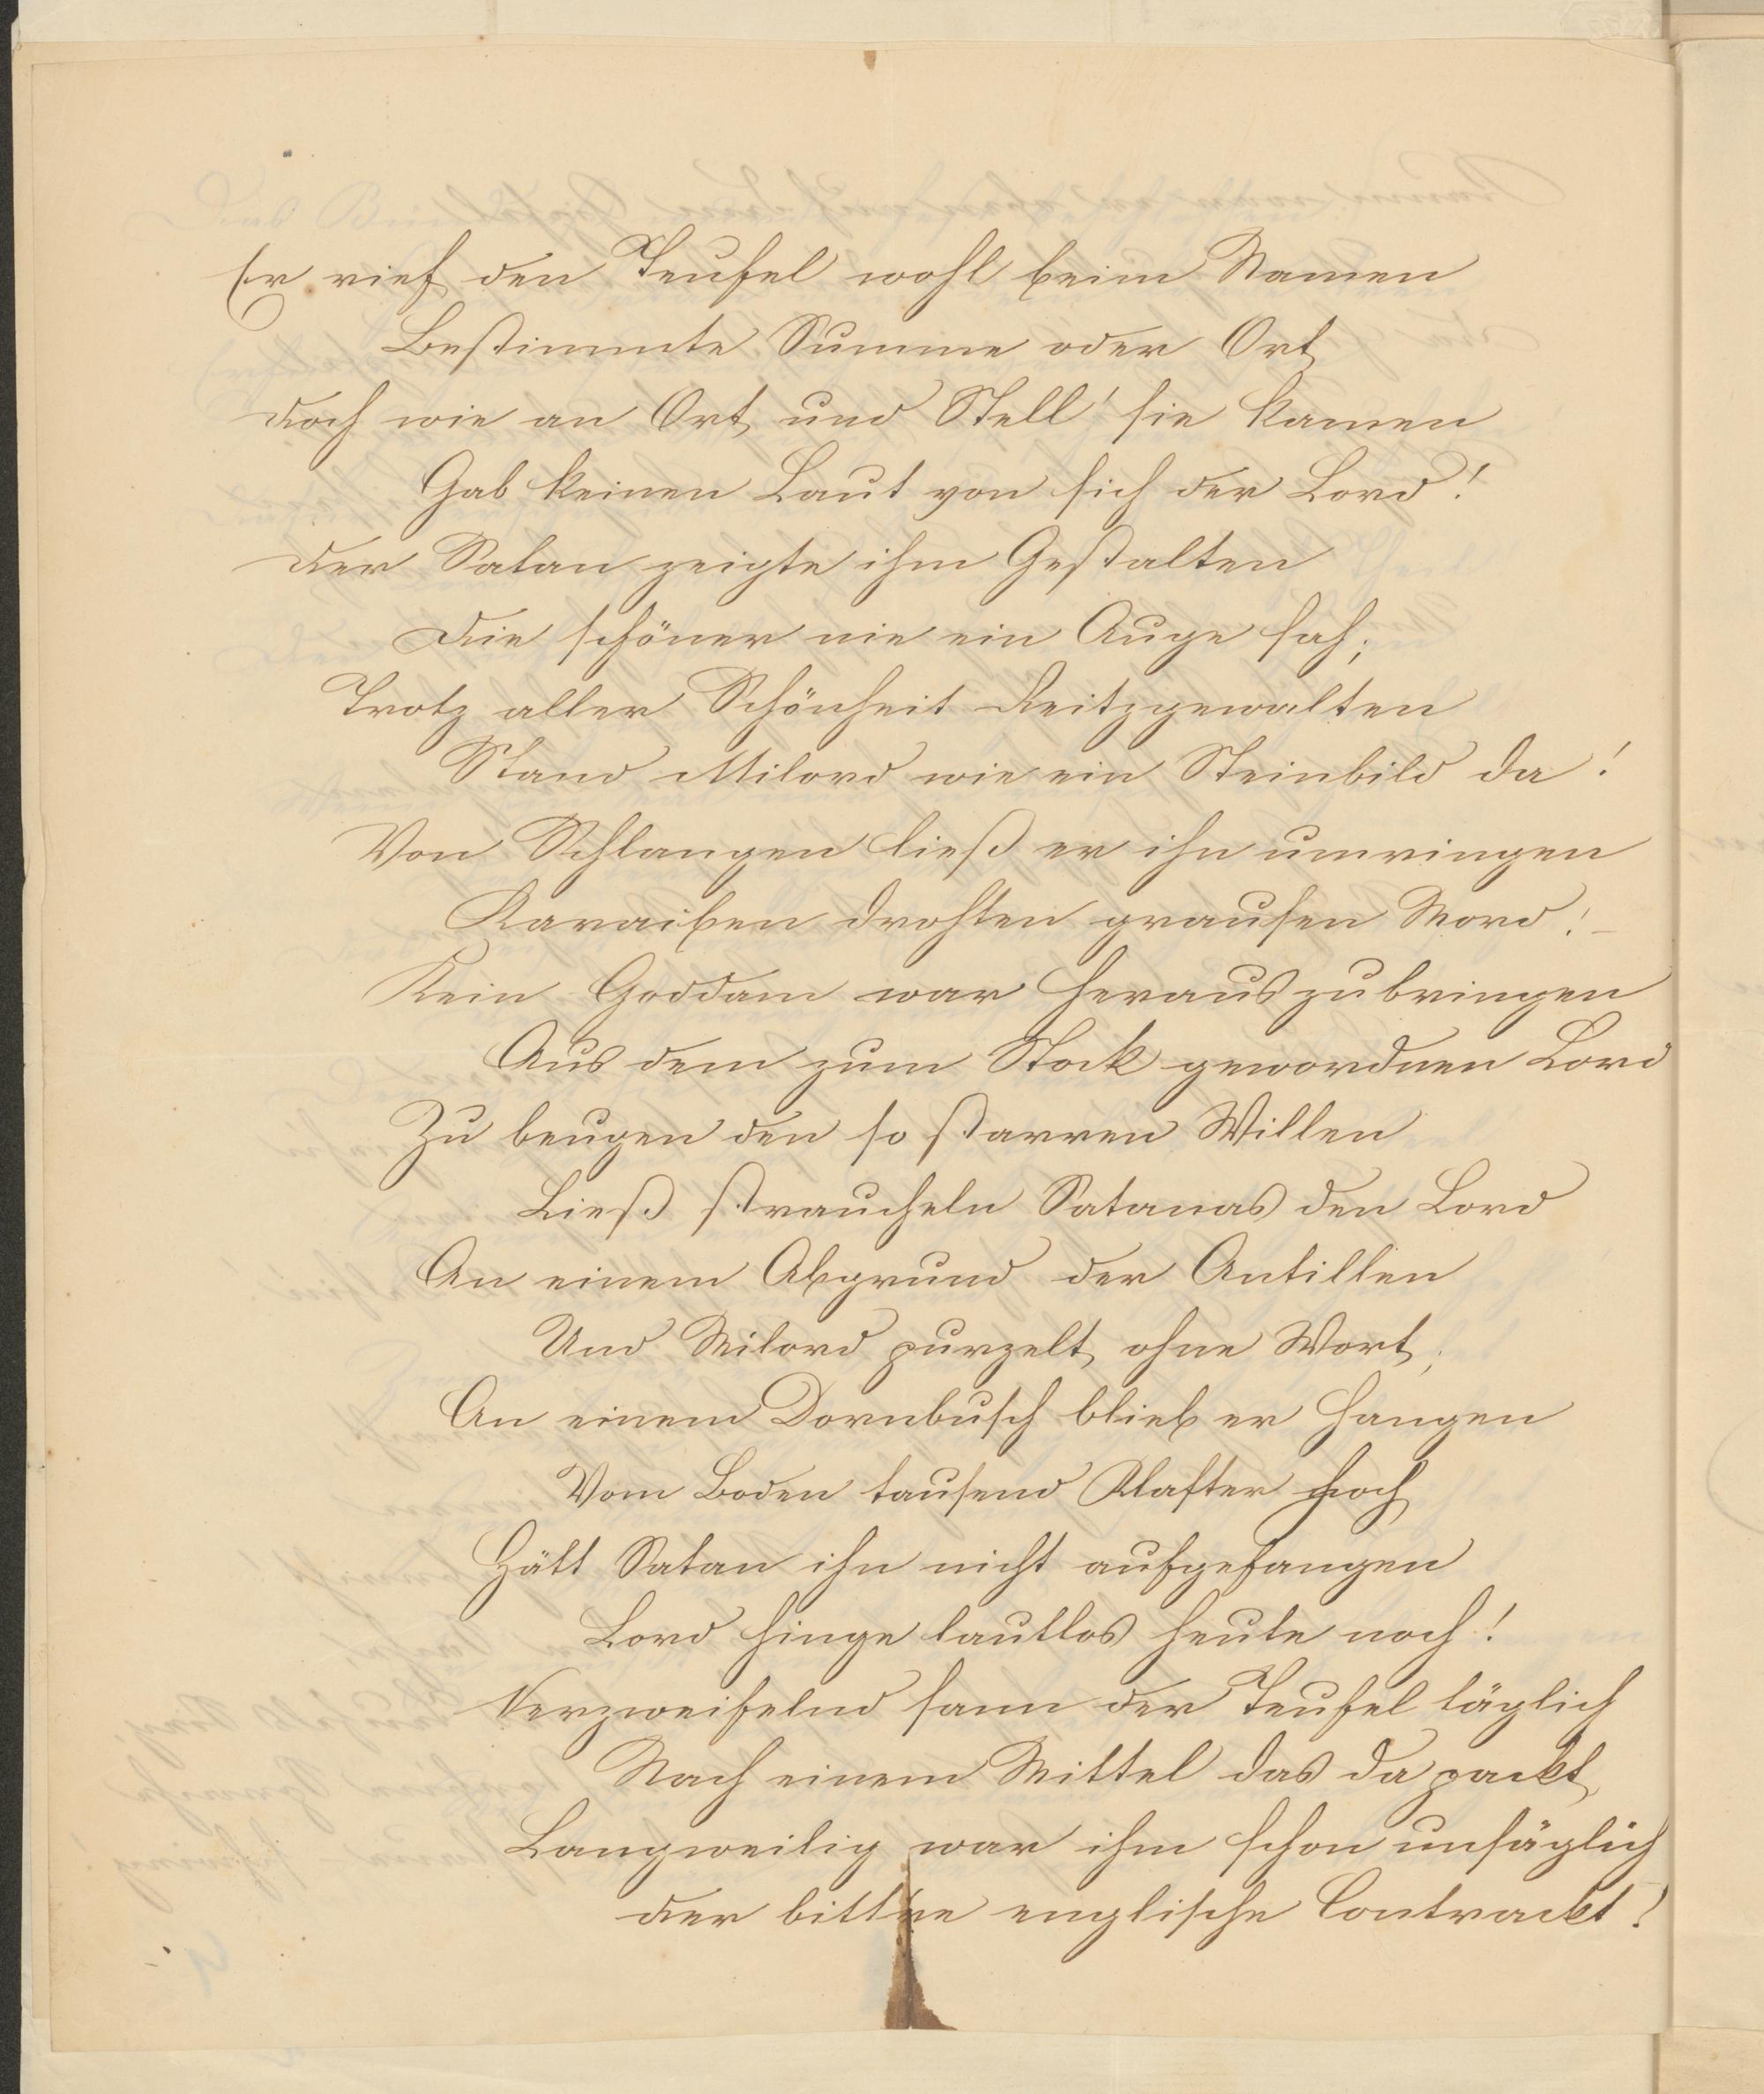 Er rief den Teufel wohl beim Namen
Bestimmte Summe oder Ort
Doch wie an Ort und Stell' sie kamen
Gab keinen Laut von sich der Lord!
Der Satan zeigte ihm Gestalten
Die schöner nie ein Auge sah;
Trotz aller Schönheit Reitzgewalten
Stand Milord wie ein Steinbild da!
Von Schlangen ließ er ihn umringen
Karaiben drohten grausen Mord! –
Kein Goddam war herauszubringen
Aus dem zum Stock gewordnen Lord
Zu beugen den so starren Willen
Ließ straucheln Satanas den Lord
An einem Abgrund der Antillen
Und Milord purzelt ohne Wort;
An einem Dornbusch blieb er hangen
Vom Boden tausend Klafter hoch
Hätt Satan ihn nicht aufgefangen
Lord hinge lautlos heute noch!
Verzweifelnd sann der Teufel täglich
Nach einem Mittel das da packt
Langweilig war ihm schon unsäglich
Der bittre englische Contrackt!